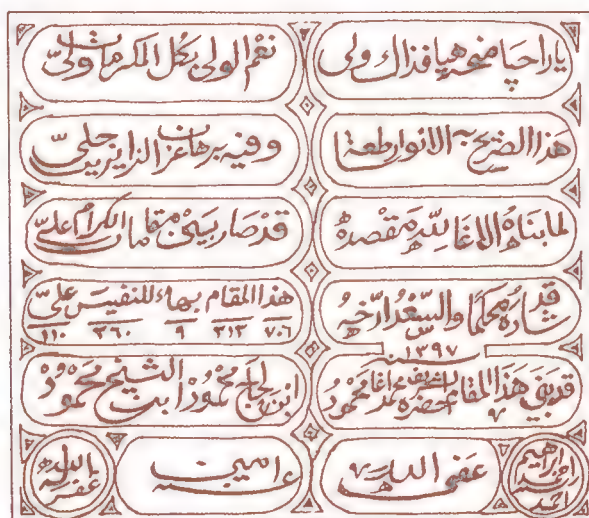 يا راجيا منحة هيا فذاك ولي نعم الولي بكل المكرمات ولىّ
هذا الضريح به الانوار وفيه برهان عز الزايرين جليّ
لما بناه الاغا للّه مقصده قد صار بين مقامات الكرام علىّ
قد شاده محكما والسّعد ارّخه هذا المقام بهاء للنفيس علىّ
١٢٩٧ ٧٠٦ ٢١٢ ٩ ٢٦٠ ١١٠
قد بني هذا المقام الشريف حضرة محمد اغا محمود ابن الحاج محمود ابن الشيخ محمود
ابراهيم احمد عفى الله عنه امين